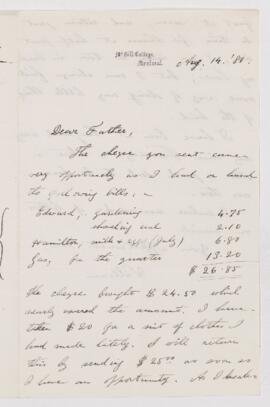 McGill College,
Montreal.
Aug. 14. '80.
Dear Father,
The cheque you sent came
very opportunely as I had on hand
the following bills, —
Edward, gardening 4.75
shoeing and 2.10
Hamilton, milk & eggs (July) 6.80
Gas, for the quarter 13.20
$ 26.85
The cheque brought $ 24.50 which
nearly covered the amount. I have
taken $20 for a suit of clothes I
had made lately. I will return
this by sending $25.00 as soon as
I have an opportunity. As I